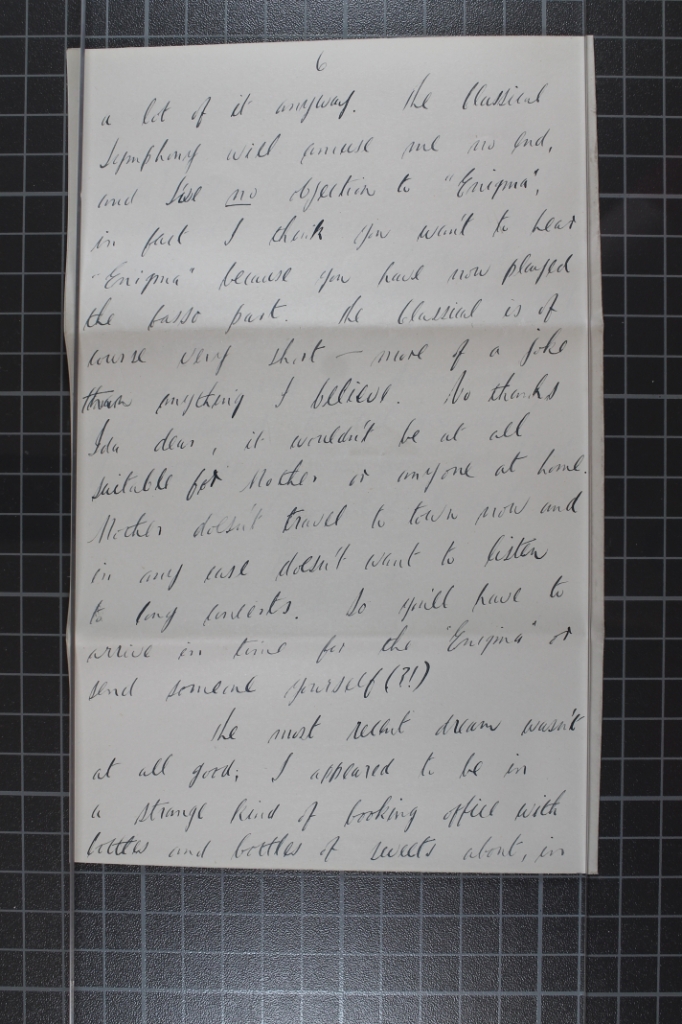 6
a lot of it anyway. The Classical
Symphony will amuse me no end,
and I've no objection to "Enigma",
in fact I think you want to hear
"Enigma" because you have now played
the basso part. The Classical is of
course very short — more of a joke
than anything I believe. No thanks
Ida dear, it wouldn't be at all
suitable for Mother or anyone at home.
Mother doesn't travel to town now and
in any case doesn't want to listen
to long concerts. So you'll have to
arrive in time for the "Enigma" or
send someone yourself (?!)
The most recent dream wasn't
at all good; I appeared to be in
a strange kind of booking office with
bottles and bottles of sweets about, in